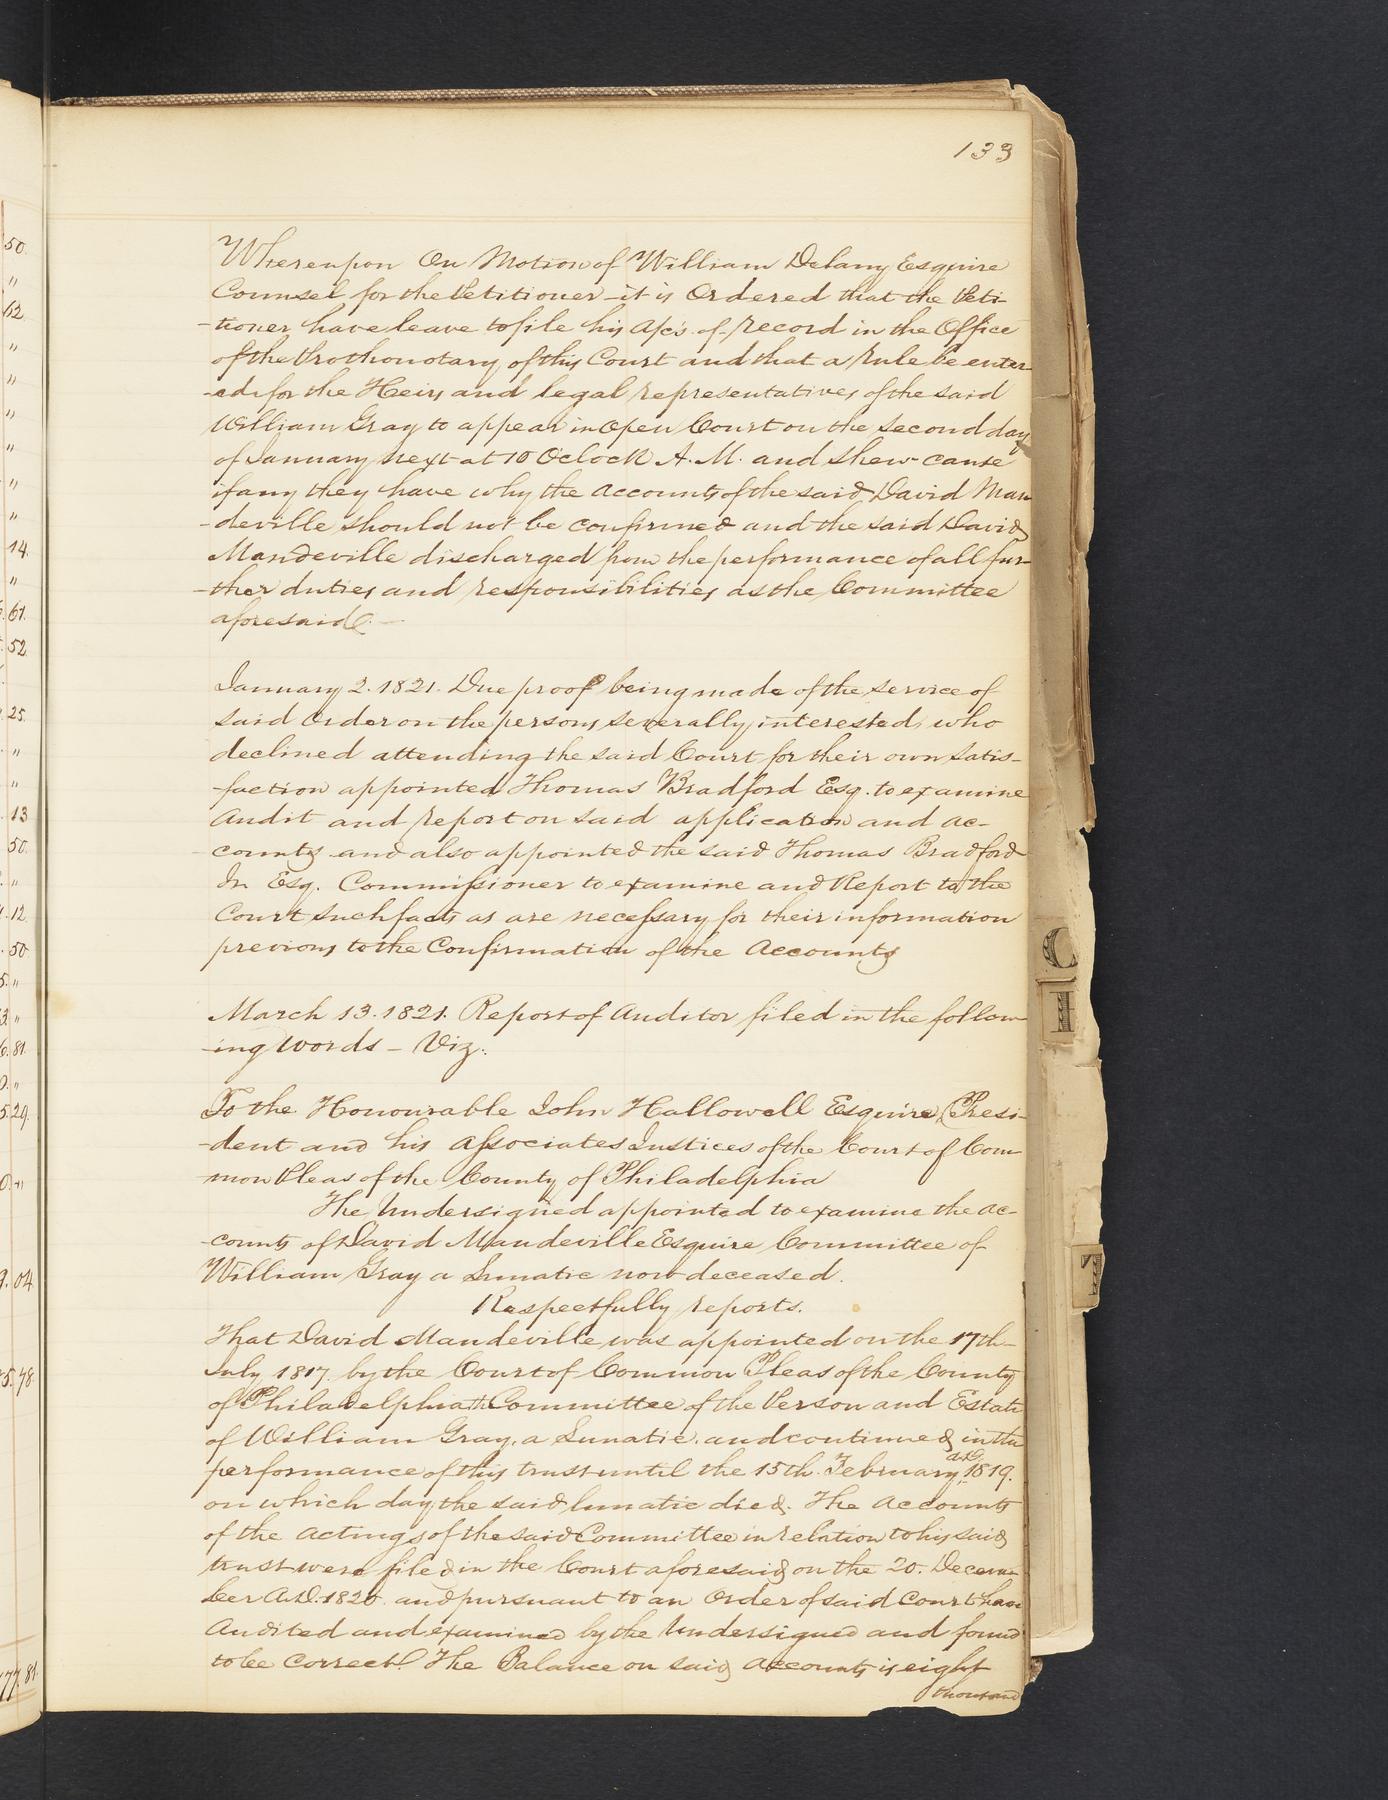 133
Whereupon On Motion of William Delany Esquire
Counsel for the Petitioner it is Ordered that the Peti-
-tioner have leave to file his A/c's of record in the Office
of the Prothonotary of this Court and that a rule be enter-
-ed for the Heirs and legal representatives of the said
William Gray to appear in Open Court on the second day
of January next at 10 OClock A.M. and shew cause
if any they have why the Accounts of the said David Man
-deville should not be confirmed and the said David
Mandeville discharged from the performance of all fur-
-ther duties and responsibilities as the Committee
aforesaid. —
January 2. 1821. Due proof being made of the service of
said Order on the persons severally interested who
declined attending the said Court for their own satis-
-faction appointed Thomas Bradford Esq. to examine
Audit and report on said application and ac-
counts and also appointed the said Thomas Bradford
Jr Esq. Commissioner to examine and Report to the
Court such facts as are necessary for their information
previous to the Confirmation of the Accounts
March 13. 1821. Report of Auditor filed in the follow-
-ing words – Viz:
To the Honourable John Hallowell Esquire, Presi-
-dent and his Associates Justices of the Court of Com
mon Pleas of the County of Philadelphia
The Undersigned appointed to examine the ac-
-counts of David Mandeville Esquire Committee of
William Gray a Lunatic now deceased.
Respectfully reports.
That David Mandeville was appointed on the 17th
July 1817. by the Court of Common Pleas of the County
of Philadelphia the Committee of the Person and Estate
of William Gray, a Lunatic. and continued in the
performance of this trust until the 15th February A.D. 1819.
on which day the said lunatic died. The Accounts
of the actings of the said Committee in relation to his said
trust were filed in the Court aforesaid on the 20. Decem-
ber A.D. 1820. and pursuant to an Order of said Court have
Audited and examined by the Undersigned and found
to be correct. The Balance on said accounts is eight
thousand
50.
"
62
"
"
"
"
"
"
14.
"
61.
52
25.
"
"
13
50.
"
12
50
"
"
81.
"
29.
"
04
78
77.81
C
I
T